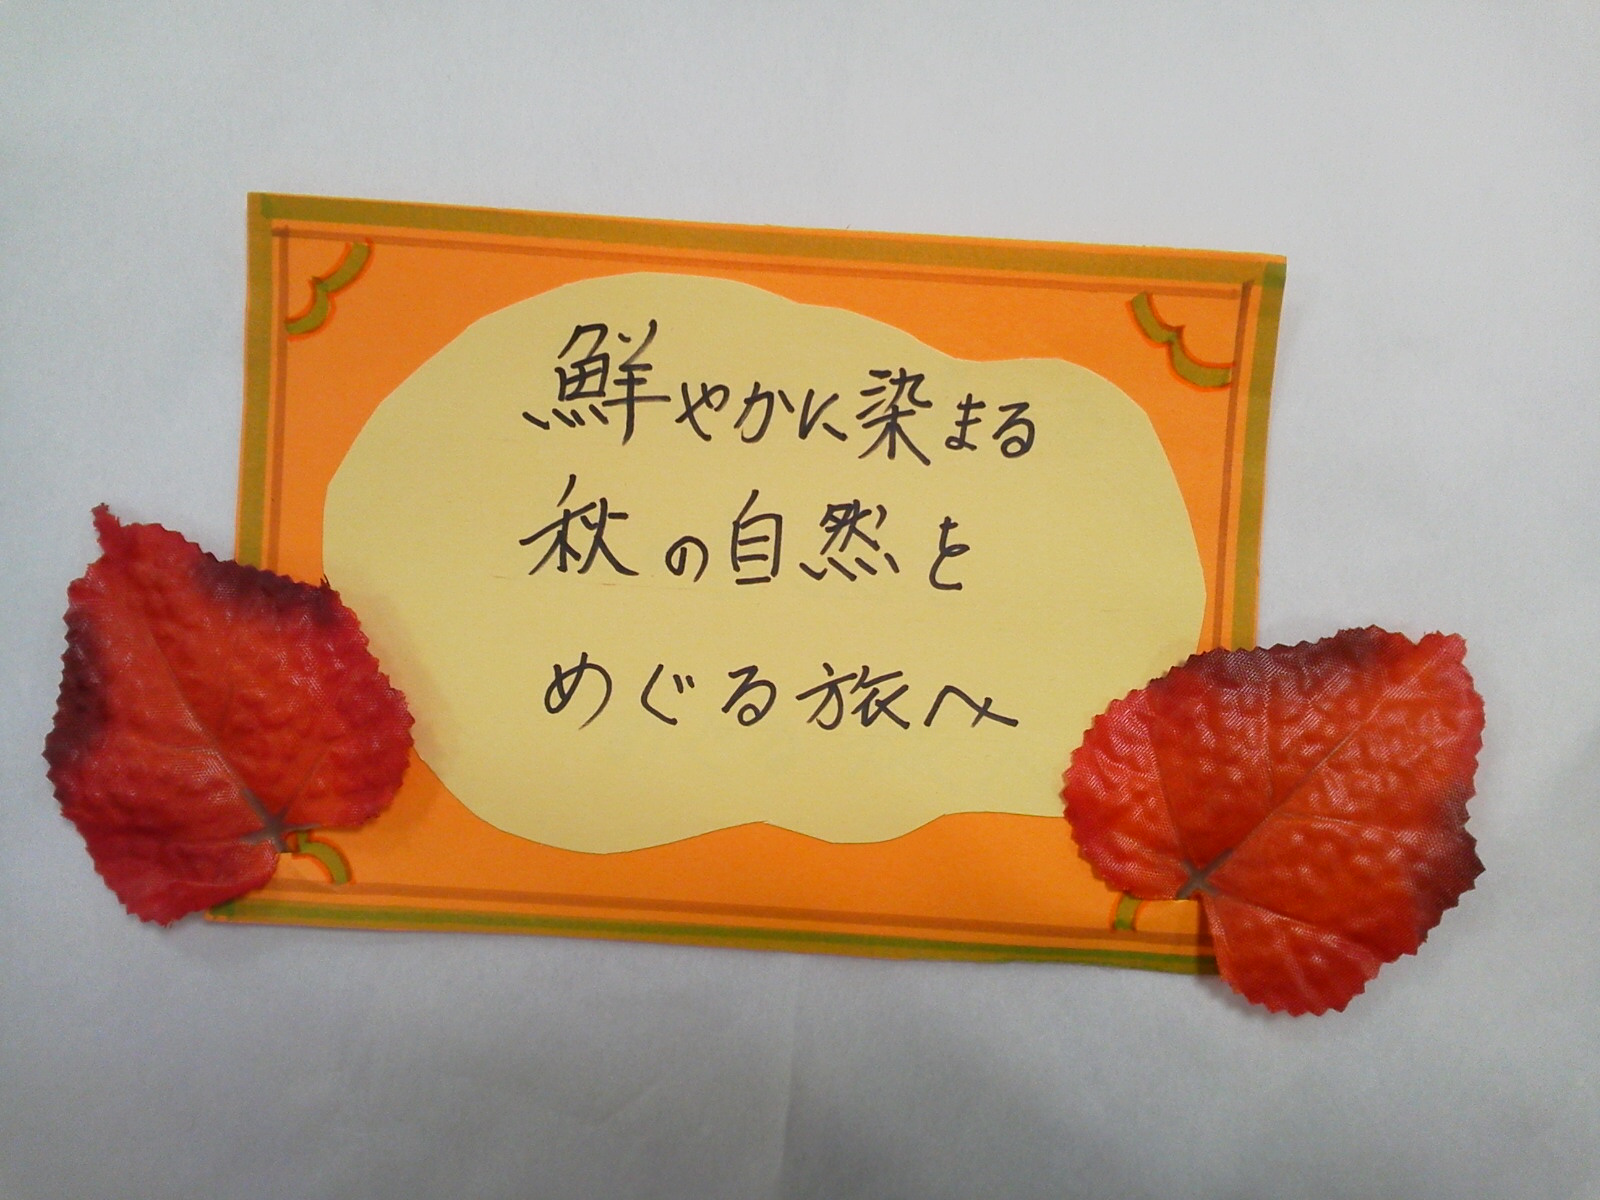 鮮やかに染まる
秋の自然を
めぐる旅へ